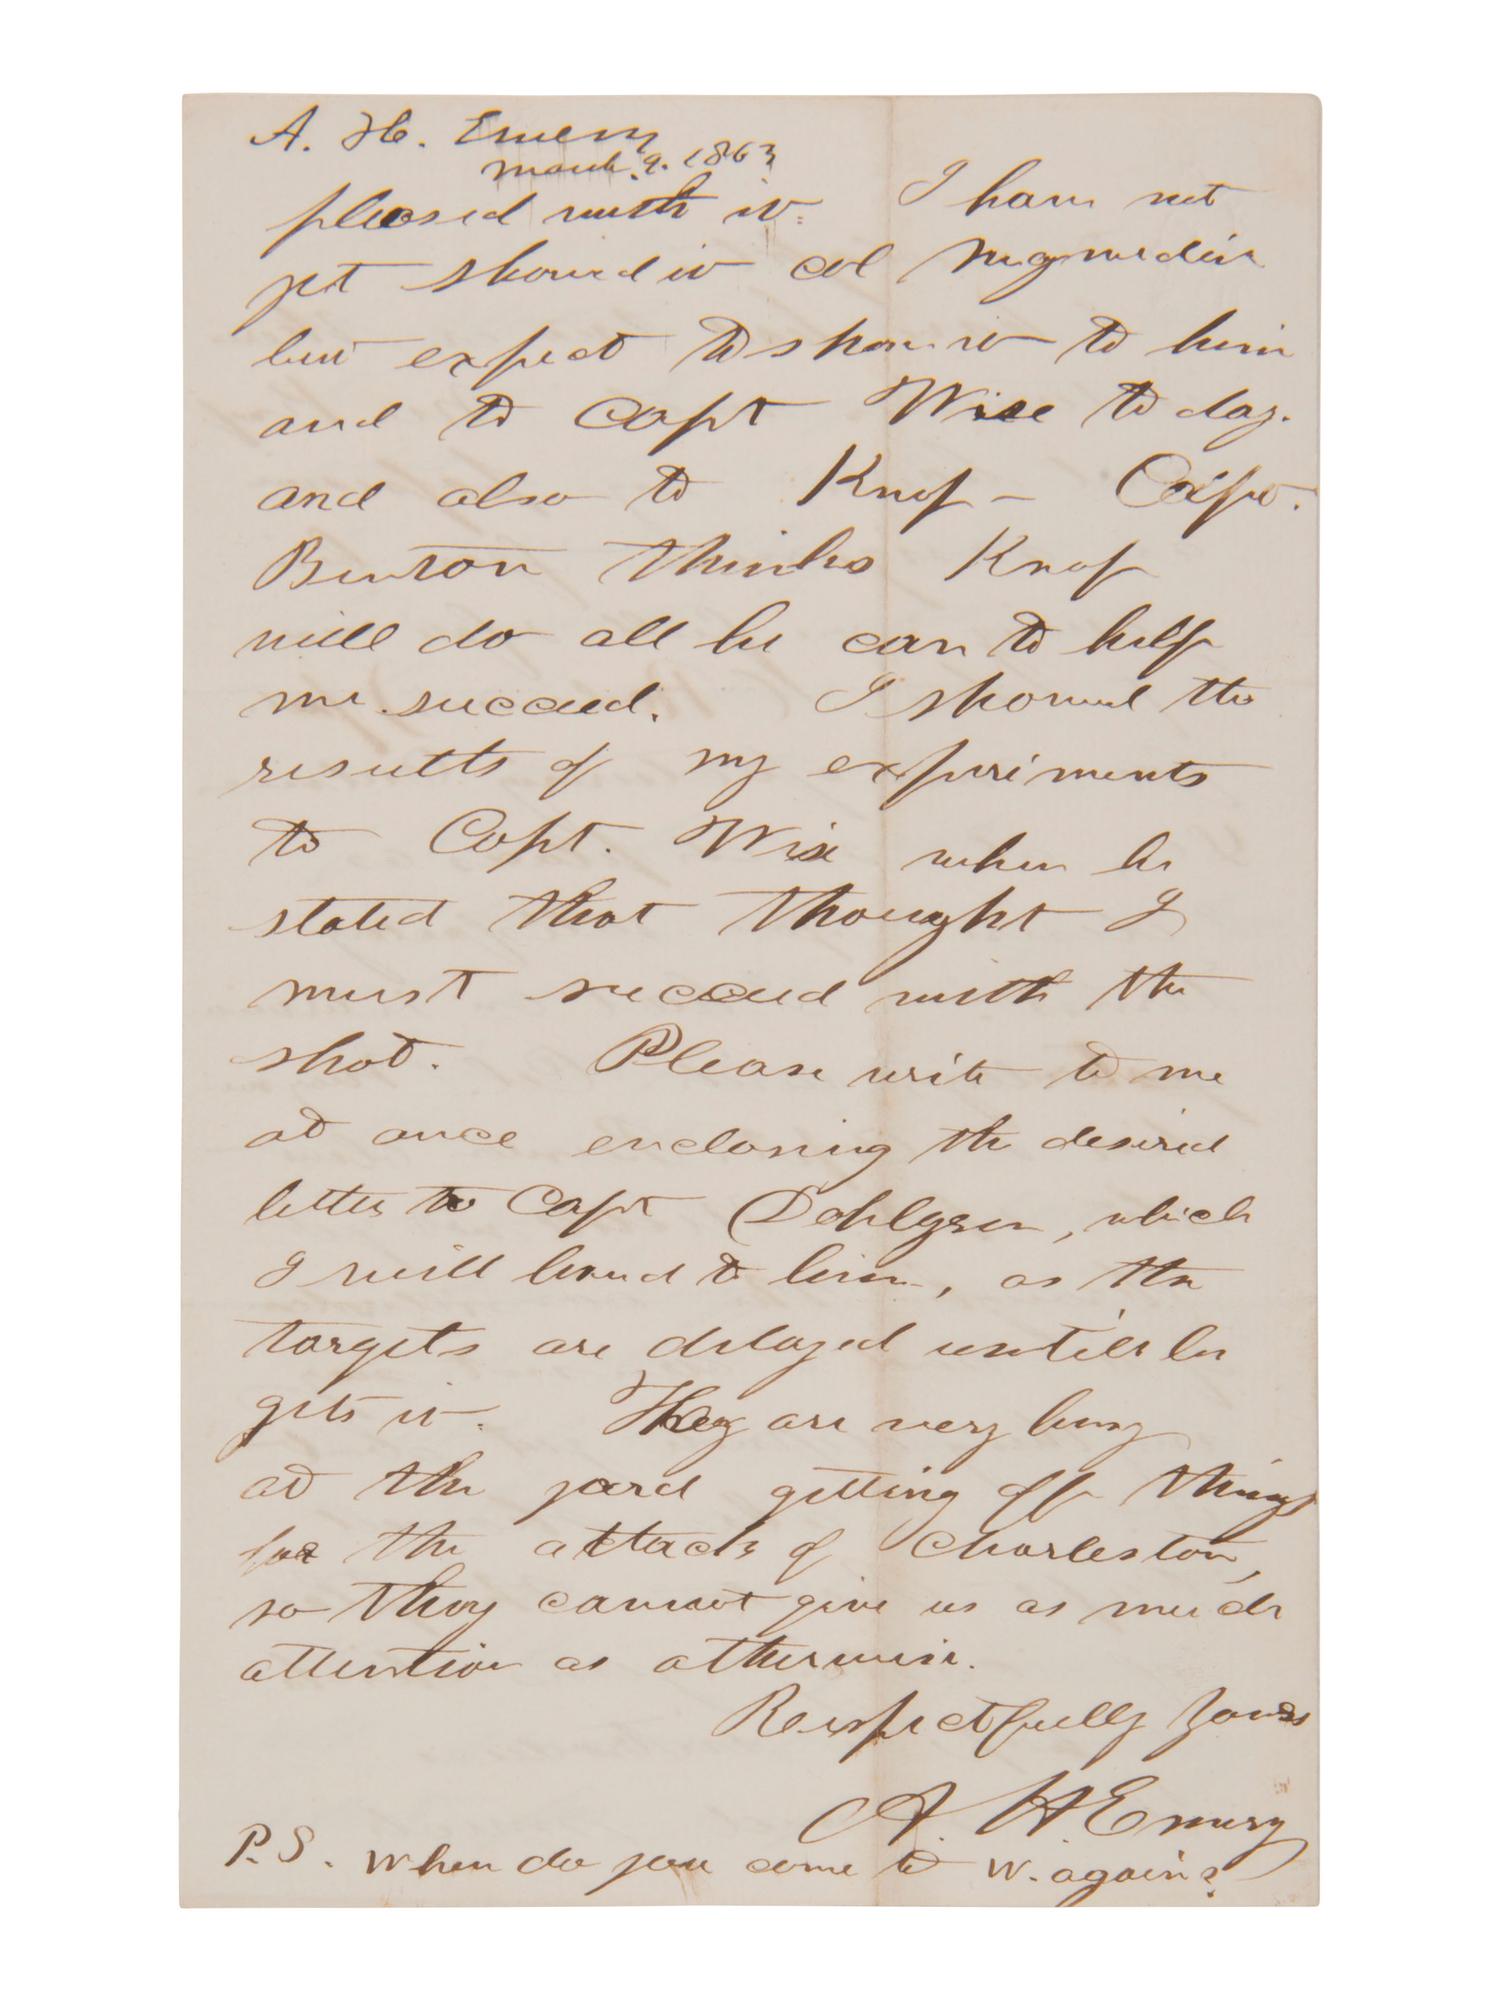 A. H. Emery
March. 9. 1863
pleased with it. I have not
yet showed it Col
but expect to show it to him
and to Capt Wise to day.
and also to Knap – Capt.
Benton thinks Knap
will do all he can to help
me succeed. I showed the
results of my experiments
to Capt. Wise when he
stated that thought I
must succeed with the
shot. Please write to me
at once enclosing the desired
letter to Capt Dahlgren, which
I will hand to him, as the
targets are delayed until he
gets it. They are very busy
at the yard getting off things
for the attack of Charleston,
so they cannot give us as much
attention as otherwise.
Respectfully Yours
A. H. Emery
P.S. When do you come to W. again?